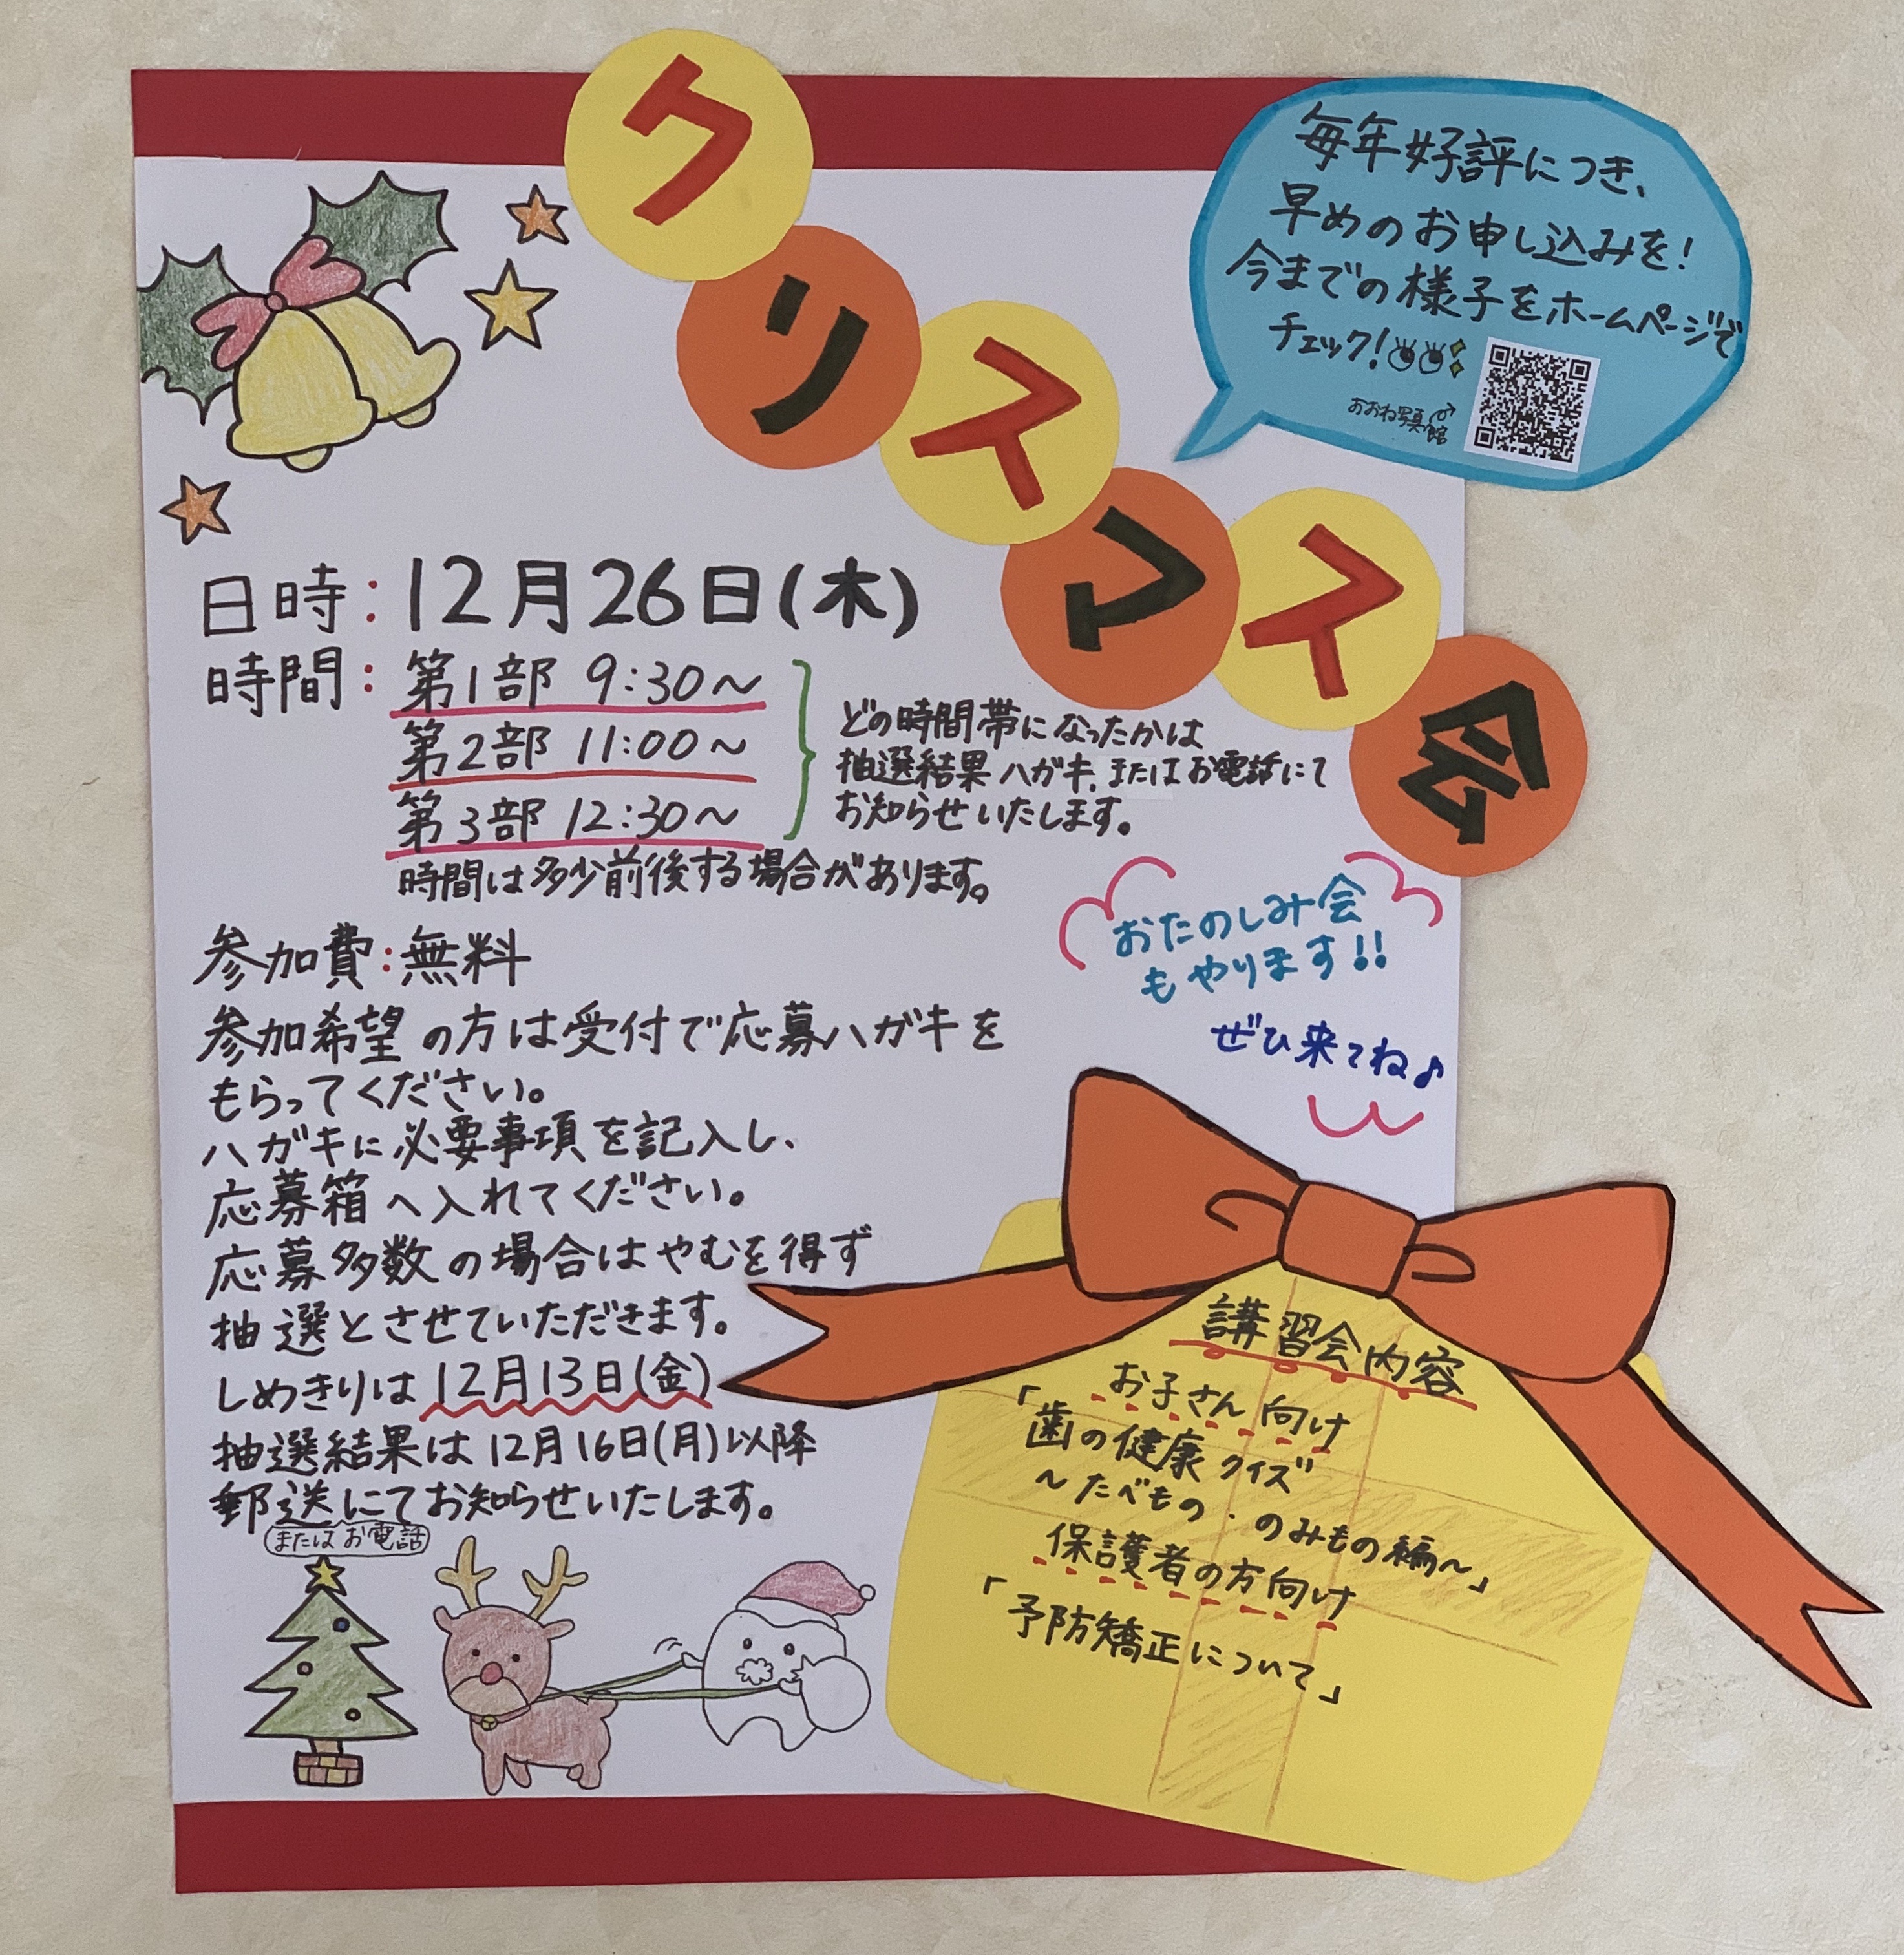 クリスマス会
毎年好評につき、
早めのお申し込みを!
今までの様子をホームページで
チェック!
おおね写真館
日時:12月26日(木)
時間:第1部 9:30〜
第2部 11:00〜
第3部 12:30〜
どの時間帯になったかは
抽選結果ハガキ、またはお電話にて
お知らせいたします。
時間は多少前後する場合があります。
おたのしみ会
もやります!!
ぜひ来てね♪
参加費:無料
参加希望の方は受付で応募ハガキを
もらってください。
ハガキに必要事項を記入し、
応募箱へ入れてください。
応募多数の場合はやむを得ず
抽選とさせていただきます。
しめきりは12月13日(金)
抽選結果は12月16日(月)以降
郵送にてお知らせいたします。
またはお電話
講習会内容
お子さん向け
「歯の健康クイズ
〜たべもの・のみもの編〜」
保護者の方向け
「予防矯正について」